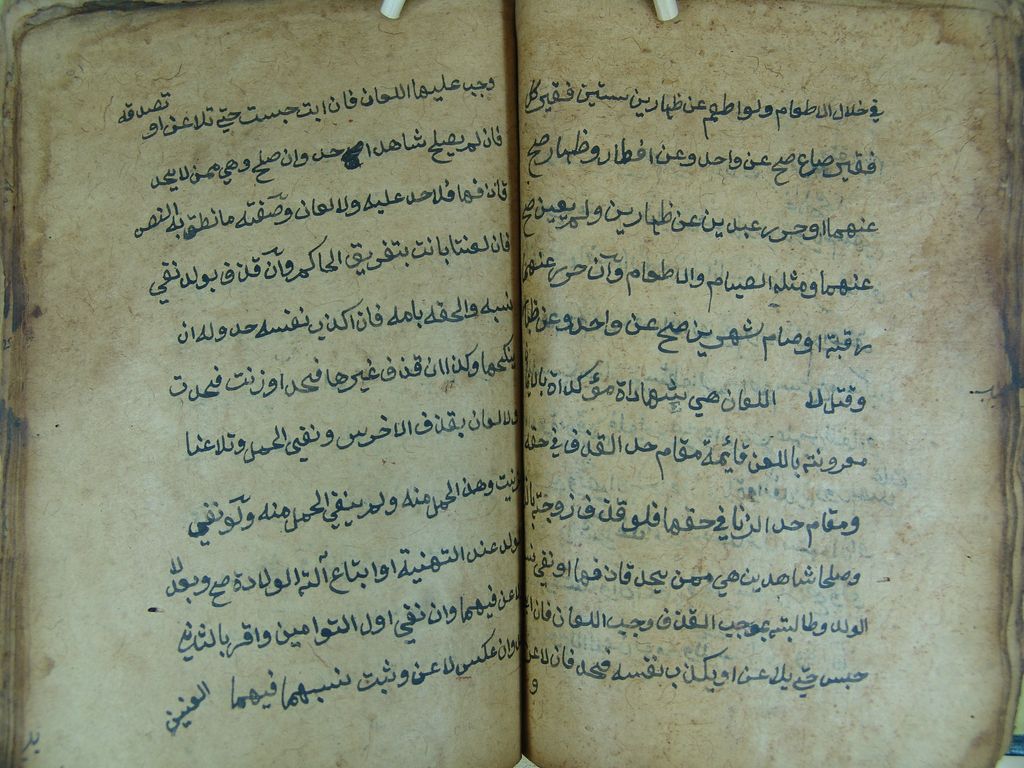 في خلال الاطعام ولو اطعم عن ظهارين ستين فقير كل
فقير صاع صح عن واحد وعن افطار وظهار صح
عنهما او حرر عبدين عن ظهارين ولم يعين صح
عنهما ومثله الصيام والاطعام وان حرر عنهما
رقبة او صام شهرين صح عن واحد وعن ظهار
وقتل لا اللعان هي شهاداة مؤكداة بالايمان
مقرونة باللعن قائمة مقام حد القذف في حقه
ومقام حد الزنا في حقها فلو قذف زوجته بالزنا
وصلحا شاهدين هي ممن يحد قاذفها او نفي نسب
الولد وطالبته بموجب القذف وجب اللعان فان ابى
حبس حتي يلاعن او يكذب نفسه فيحد فان لاعن
و
وجب عليها اللعان فان ابت حبست حتي تلاعن او تصدقه
فان لم يصلح شاهدا حد وان صلح وهي ممن لا يحد
قاذفها فلا حد عليه ولا لعان وصفته ما نطق به النص
فان لعنتا بانت بتفريق الحاكم وان قذف بولد نفي
نسبه والحقه بامه فان اكذب نفسه حد وله ان
ينكحها وكذا ان قذف غيرها فحد او زنت فحدت
ولا لعان بقذف الاخرس ونفي الحمل وتلاعنا
بزنيت وهذا الحمل منه ولم ينفي الحمل منه ولو نفي
الولد عند التهنية او ابتاع آلة الولادة صح وبعد لا
لاعن فيهما وان نفي اول التوامين واقر بالثاني
حد وان عكس لاعن وثبت نسبهما فيهما العنين